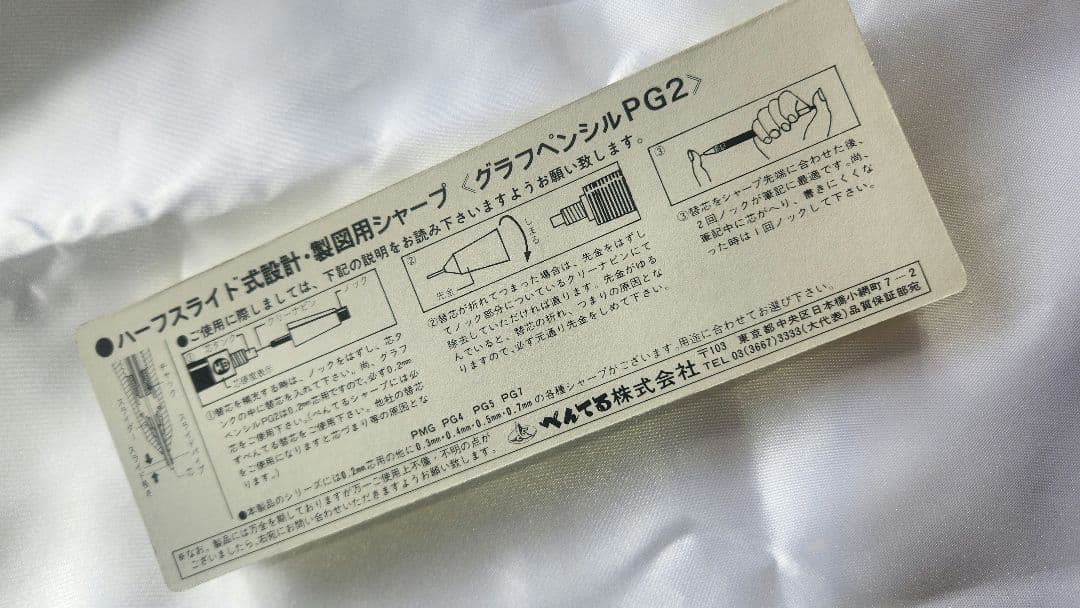 ●ハーフスライド式設計・製図用シャープ《グラフペンシルPG2》
●ご使用に際しましては、下記の説明をお読み下さいますようお願い致します。
チャック
スライダー
スライドパイプ
スライド長さ
①
芯タンク
クリーナピン
ノック
芯硬度表示
①替芯を補充する時は、ノックをはずし、芯タ
ンクの中に替芯を入れて下さい。尚、グラフ
ペンシルPG2は0.2mm芯用ですので、必ず0.2mm
芯をご使用下さい。(ぺんてるシャープには必
ずぺんてる替芯をご使用下さい。他社の替芯
をご使用になりますと芯づまり等の原因とな
ります。)
②
先金
しまる
②替芯が折れてつまった場合は、先金をはずし
てノック部分についているクリーナピンにて
除去していただければ直ります。先金がゆる
んでいると、替芯の折れ、つまりの原因とな
りますので、必ず元通り先金をしめて下さい。
③
③替芯をシャープ先端に合わせた後、
2回ノックが筆記に最適です。尚、
筆記中に芯がへり、書きにくくな
った時は1回ノックして下さい。
PMG PG4 PG5 PG7
●本製品のシリーズには0.2mm芯用の他に0.3mm・0.4mm・0.5mm・0.7mmの各種シャープがございます。用途に合わせてお選び下さい。
※なお、製品には万全を期しておりますが万一ご使用上不備・不明の点が
ございましたら、右宛にお問い合わせいただきますようお願い致します。
ぺんてる株式会社
〒103 東京都中央区日本橋小網町7-2
TEL 03(3667)3333(大代表)品質保証部宛